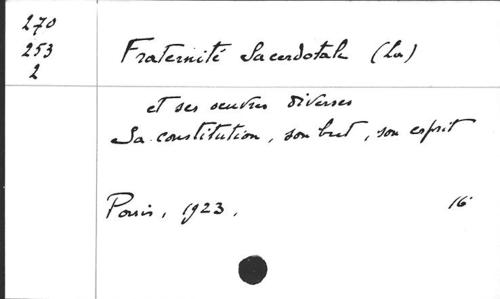 270
253
2
Fraternité Sacerdotale (La)
et ses oeuvres diverses
Sa constitution, son but, son esprit
Paris, 1923.
16°